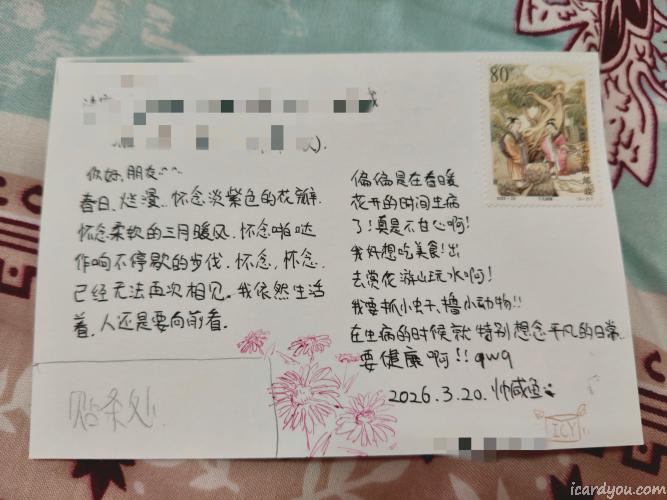 80
你好,朋友~~
春日、烂漫、怀念淡紫色的花瓣.
怀念柔软的三月暖风、怀念啪哒
作响不停歇的步伐、怀念、怀念、
已经无法再次相见。我依然生活
着、人还是要向前看。
偏偏是在春暖
花开的时间生病
了!真是不甘心啊!
我好想吃美食!出
去赏花游山玩水啊!
我要抓小虫子、撸小动物!!
在生病的时候就特别想念平凡的日常..
要健康啊!!qwq
2026.3.20. 帅咸鱼
贴条处
ICY
icardyou.com